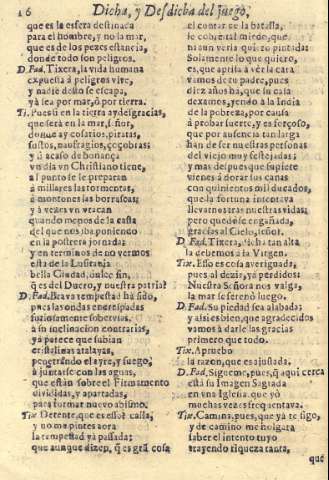 16 Dicha, y Desdicha del juego,
que es la esfera destinada
para el hombre, y no la mar,
que es de los pezes estancia,
donde todo son peligros.
D. Fad. Tixera, la vida humana
expuesta à peligros vive,
y nadie desto se escapa,
yà sea por mar, ò por tierra.
Ti. Puesto en la tierra ay desgracias,
que serà en la mar, señor,
donde ay cosarios, piratas,
sustos, naufragios, çoçobras;
y si acaso de bonança
vn dia vn Christiano tiene,
al punto se le preparan
à millares las tormentas,
à montones las borrascas;
y à vezes vn vracan
quando menos de la casta
del que nos iba poniendo
en la postrera jornada;
y en terminos de no vernos
esta de la Lusitania
bella Ciudad, dulce fin,
q̃ es del Duero, y nuestra patria?
D. Fad. Brava tempestad ha sido,
pues las ondas encrespadas
furiosamente sobervias,
à su inclinacion contrarias,
yà parece que subian
cristalinas atalayas,
penetrando el ayre, y fuego,
à juntarse con las aguas,
que estàn sobre el Firmamento
divididas, y apartadas,
para formar nuevo abismo.
Tix. Detente, que es essos casta,
y no me pintes aora
la tempestad yà passada;
que aunque dizen, q̃ es gran cosa
el contar de la batalla,
le cobrè tal miedo, que
ni aun verla quiero pintada:
Solamente lo que quiero,
es, que aprisa à ver la cara
vamos de tu padre, pues
diez años ha, que su casa
dexamos, yendo à la India
de la pobreza, por causa
à probar suerte, y es forçoso,
que por ausencia tan larga
han de ser nuestras personas
del viejo muy festejadas;
y mas despues que supiere
vienes à dorar sus canas
con quinientos mil ducados,
que la fortuna intentava
llevarnos tras nuestras vidas;
pero quedòse engañada,
gracias al Cielo, señor.
D. Fad. Tixera, dicha tan alta
la debemos à la Virgen.
Tix. Esso es cosa averiguada,
pues al dezir, yà perdidos:
Nuestra Señora nos valga,
la mar se serenò luego.
D. Fad. Su piedad sea alabada;
y assi es bien, que agradecidos
vamos à darle las gracias
primero que todo.
Tix. Apruebo
la razon, que es ajustada.
D. Fad. Sigueme, pues, q̃ aqui cerca
està su Imagen Sagrada
en vna Iglesia, que yo
muchas vezes frequentava.
Tix. Camina, pues, que yà te sigo,
y de camino me holgara
saber el intento tuyo
trayendo riqueza tanta,
què